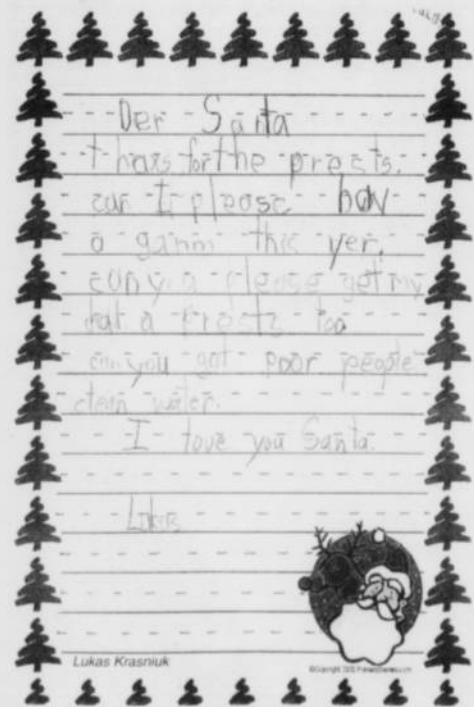 Der Santa
thaxs for the prests.
can I please hav
a gamm this yer.
can you please get my
a prests too
can you get poor people
clean water.
I love you Santa.
Lukas
Lukas Krasniuk